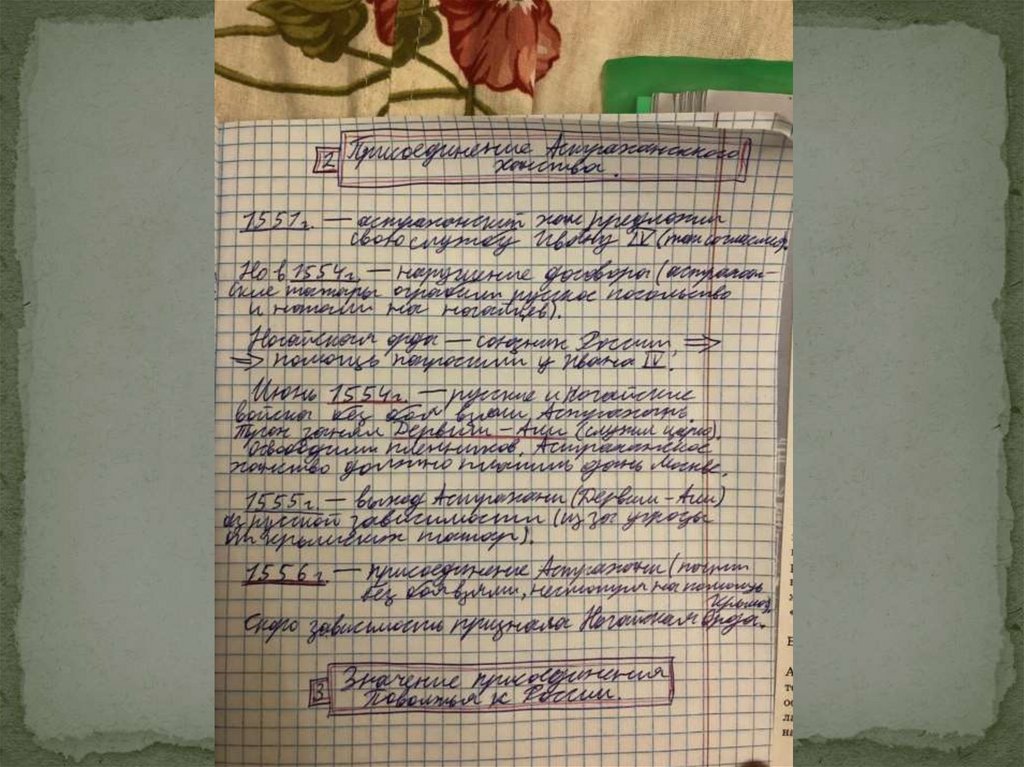 2 Присоединение Астраханского
ханства.
1551 г. — астраханский хан предложил
свою службу Ивану IV (тот согласился).
Но в 1554 г. — нарушение договора (астрахан-
ские татары ограбили русское посольство
и напали на ногайцев).
Ногайская орда — союзник России, ⇒
⇒ помощь попросили у Ивана IV.
Июнь 1554 г. — русские и Ногайские
войска без боя взяли Астрахань.
Трон занял Дервиш-Али (служил царю).
Освободили пленников. Астраханское
ханство должно платить дань Москве.
1555 г. — выход Астрахани (Дервиш-Али)
из русской зависимости (из за угрозы
от крымских татар).
1556 г. — присоединение Астрахани (почти
без боя взяли, несмотря на помощь
Крыма).
Скоро зависимость признала Ногайская Орда.
3 Значение присоединения
Поволжья к России.